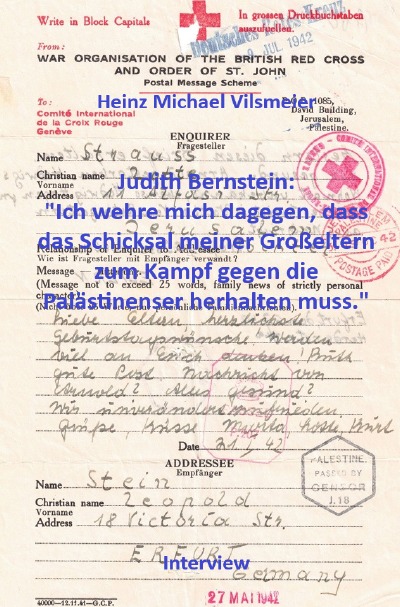 Write in Block Capitals
In grossen Druckbuchstaben
auszufuellen.
Deutsches Rotes Kreuz
JUL 1942
From:
WAR ORGANISATION OF THE BRITISH RED CROSS
AND ORDER OF ST. JOHN
Postal Message Scheme
To:
Comité International
de la Croix Rouge
Genève
Heinz Michael Vilsmeier
1085,
David Building,
Jerusalem,
Palestine.
ENQUIRER
Fragesteller
Name Strauss
Christian name
Vorname
Address 11 Alfasi Str.
Jerusalem
Judith Bernstein:
"Ich wehre mich dagegen, dass
das Schicksal meiner Großeltern
zum Kampf gegen die
Palästinenser herhalten muss."
Relationship of Enquirer to Addressee
Wie ist Fragesteller mit Empfänger verwandt?
Message
(Message not to exceed 25 words, family news of strictly personal
character)
Liebe Eltern herzlichste
Geburtstagswünsche werden
viel an Euch denken! Ruth
gute Post. Nachricht von
Arnold? Alles gesund?
Wir unverändert zufrieden.
Grüße, Küsse Lotte, Kurt
Date
ADDRESSEE
Empfänger
Name Stein
Christian name Leopold
Vorname
Address 18 Victoria Str.
ERFURT
Germany
PALESTINE
PASSED BY
CENSOR
J.18
POSTAGE PAID
Interview
27 MAI 1942
40000—12.11.41—G.C.P.